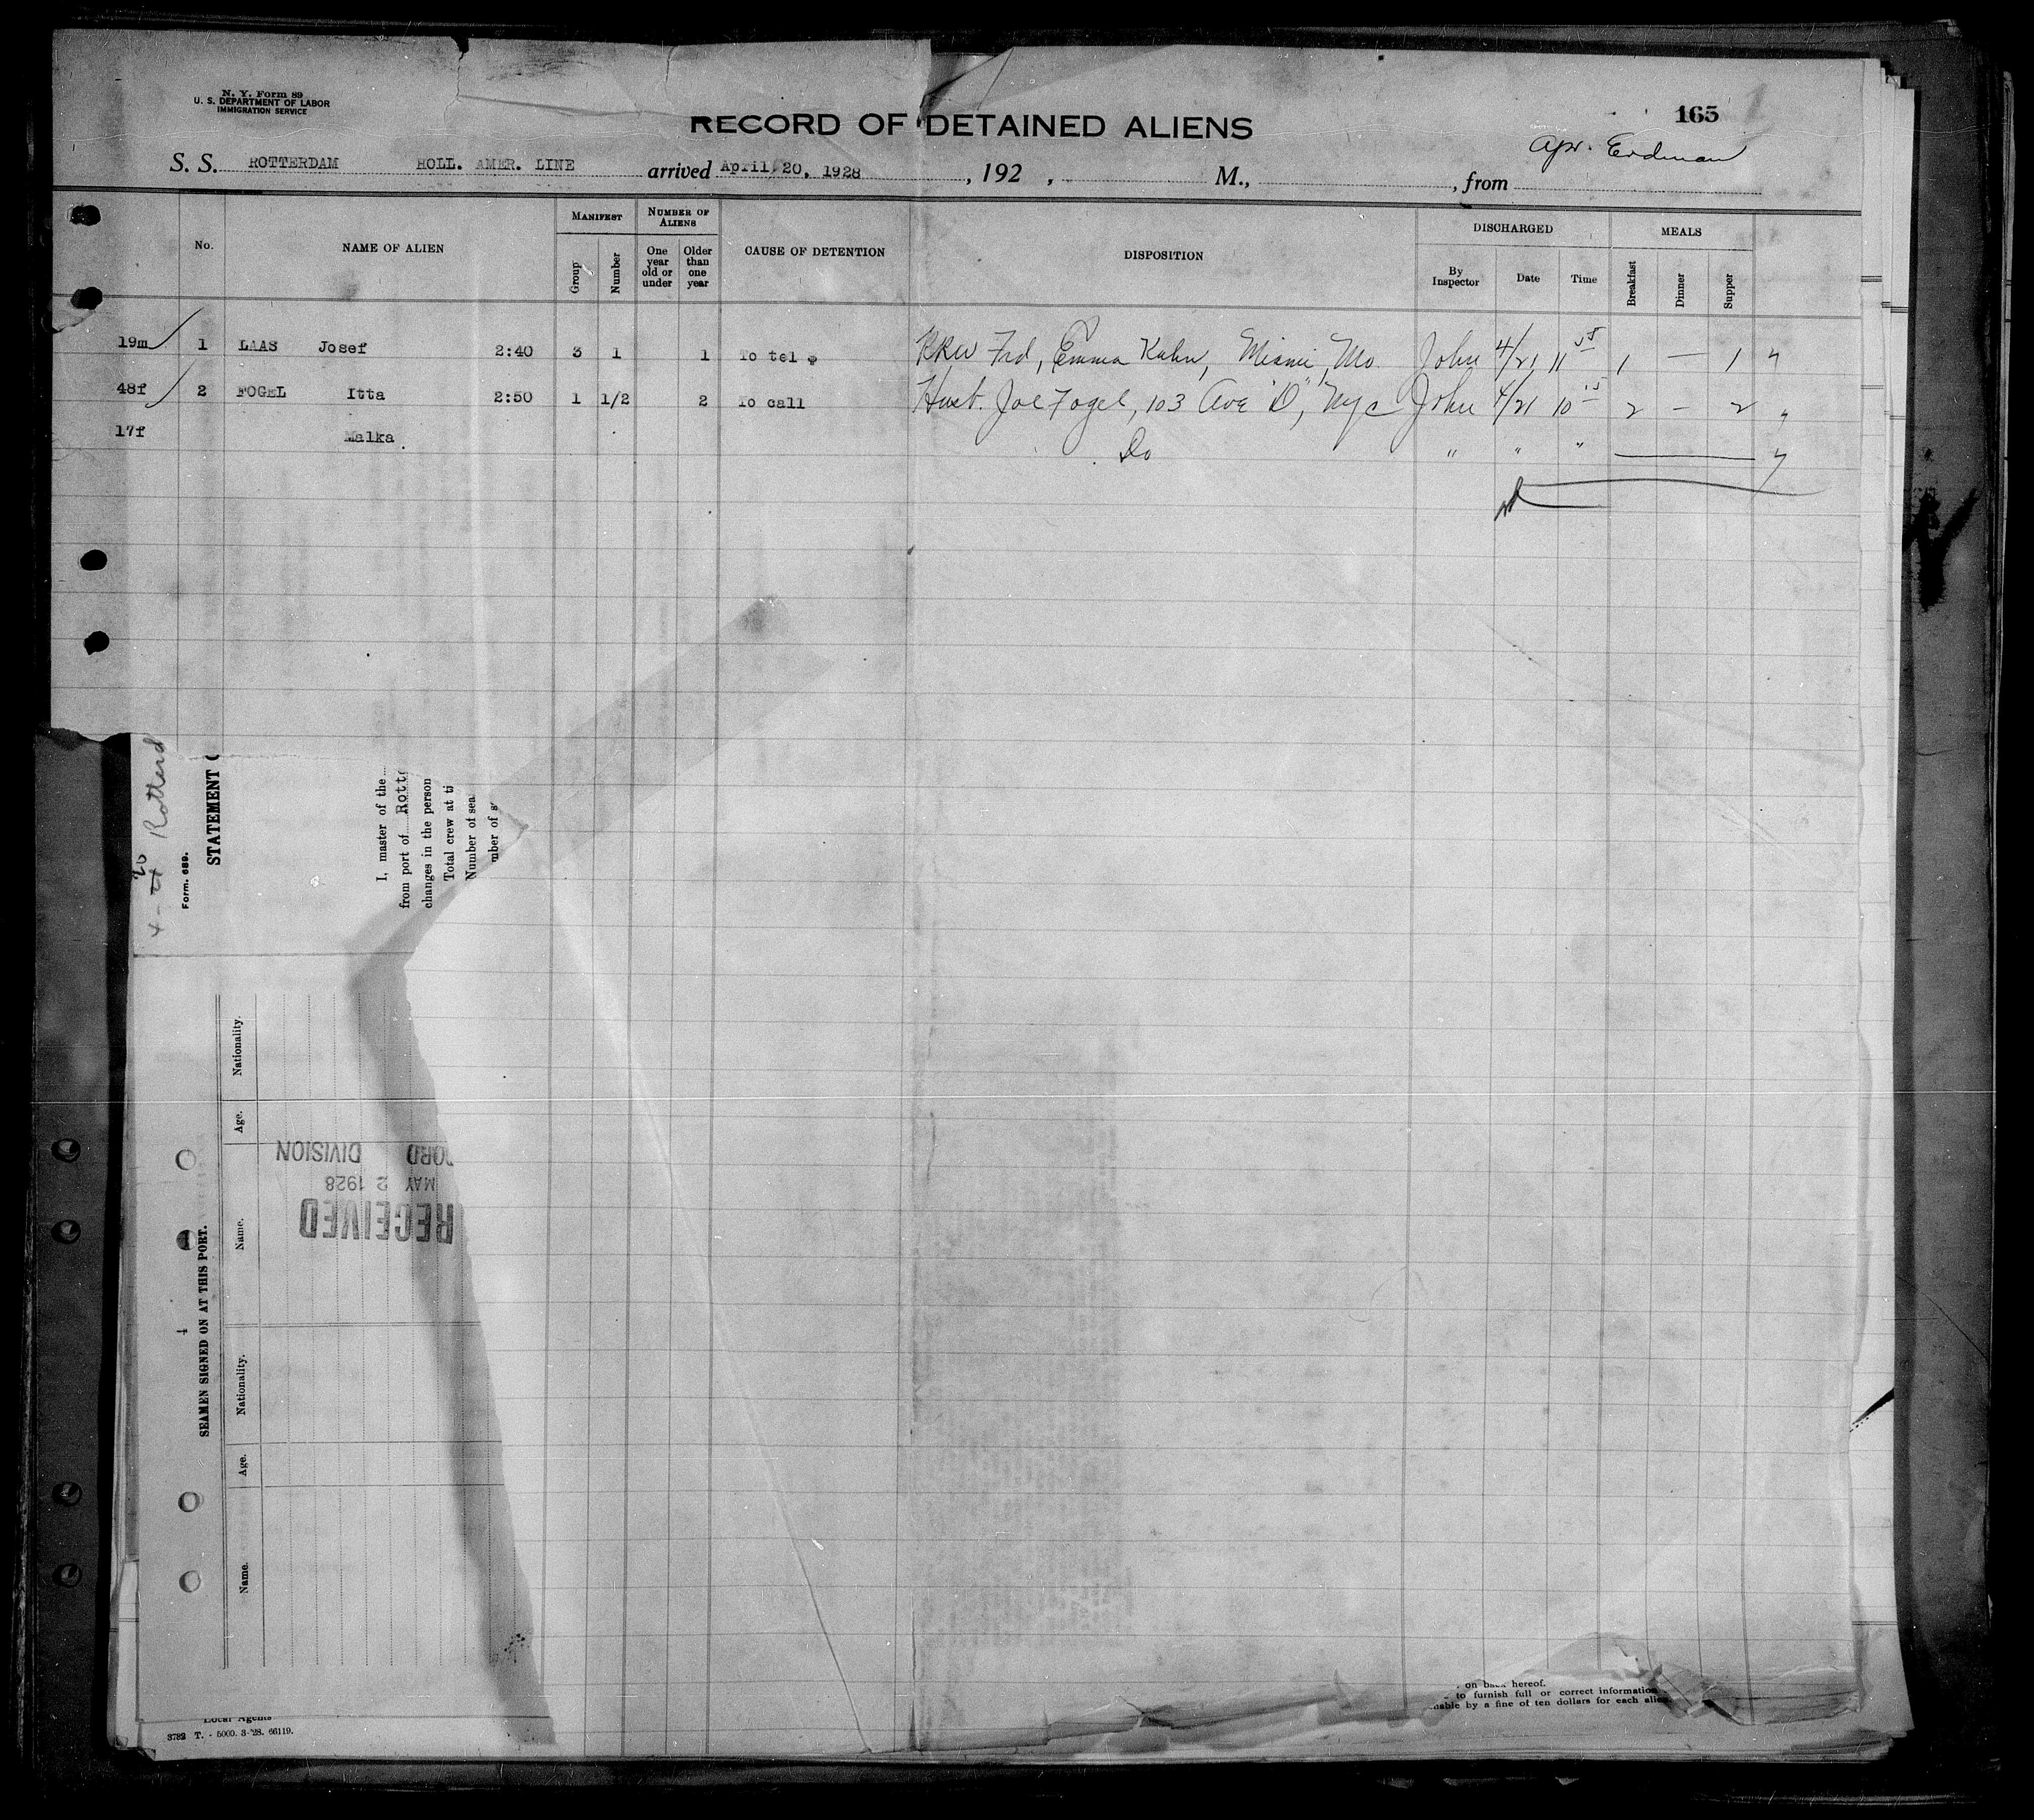 N. Y. Form 89
U. S. DEPARTMENT OF LABOR
IMMIGRATION SERVICE
165
RECORD OF DETAINED ALIENS
Apr. Erdman
S. S. ROTTERDAM HOLL. AMER. LINE arrived April 20, 1928, 192 , M., , from
No. NAME OF ALIEN MANIFEST Group Number NUMBER OF ALIENS One year old or under Older than one year CAUSE OF DETENTION DISPOSITION DISCHARGED By Inspector Date Time MEALS Breakfast Dinner Supper
19m 1 LAAS Josef 2:40 3 1 1 To tel Frd, Emma Kahn, Miami, Mo. John 4/21 11 55 1 — 1 "
48f 2 FOGEL Itta 2:50 1 1/2 2 To call Husb. Joe Fogel, 103 Ave "D", Nyc John 4/21 10 15 2 - 2 "
17f Malka Do " " "
4-20 Rotterd
Form. 689.
STATEMENT
I, master of the
from port of Rott
changes in the person
Total crew at ti
Number of sea
mber of s
SEAMEN SIGNED ON AT THIS PORT.
Name. Age. Nationality. Name. Age. Nationality.
RECEIVED
MAY 2 1928
ORD DIVISION
on back hereof.
to furnish full or correct information
nable by a fine of ten dollars for each alien
Local Agents
3782 T. - 5000. 3-'28. 66119.